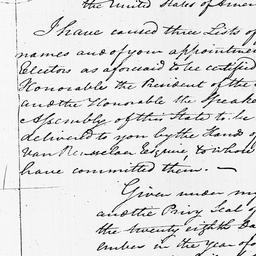 the United States of Amer
I have caused three Lists of
names and of your appointmen
Electors as aforesaid to be certified
Honorable the President of the
and the Honorable the Speake
Assembly of this State to be
delivered to you by the Hands of
Van Rensselaer Esquire, to whom
have committed them. —
Given under my
and the Privy Seal of
the twenty eighth Da
ember in the year of